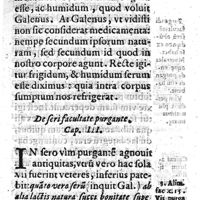 esse, ac humidum, quod voluit
Galenus. At Galenus, ut vidisti
non sic considerat medicamenta
nempe secundum ipsorum natu-
ram, sed secundum id quod in
nostro corpore agunt. Recte igi-
tur frigidum, & humidum serum
esse diximus: quia intra corpus
sumptum nos refrigerat.
De seri facultate purgante.
Cap. III.
IN sero vim purgantē agnouit
antiquitas, verū vero hac sola
vsi fuerint veteres, inferius pate-
bit: quāto vero serū (inquit Gal.) ab
alia lactis natura succe bonitate supe